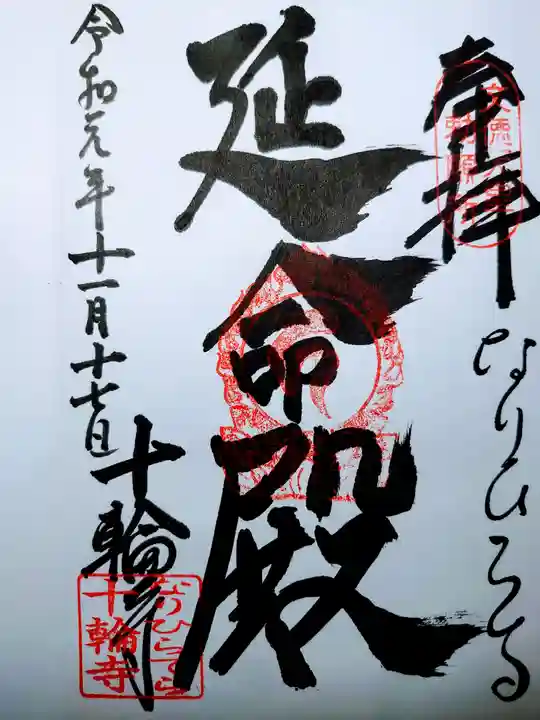 奉拝
なりひらる
延命殿
令和元年十一月十七日
十輪寺
なりひらでら
十輪寺